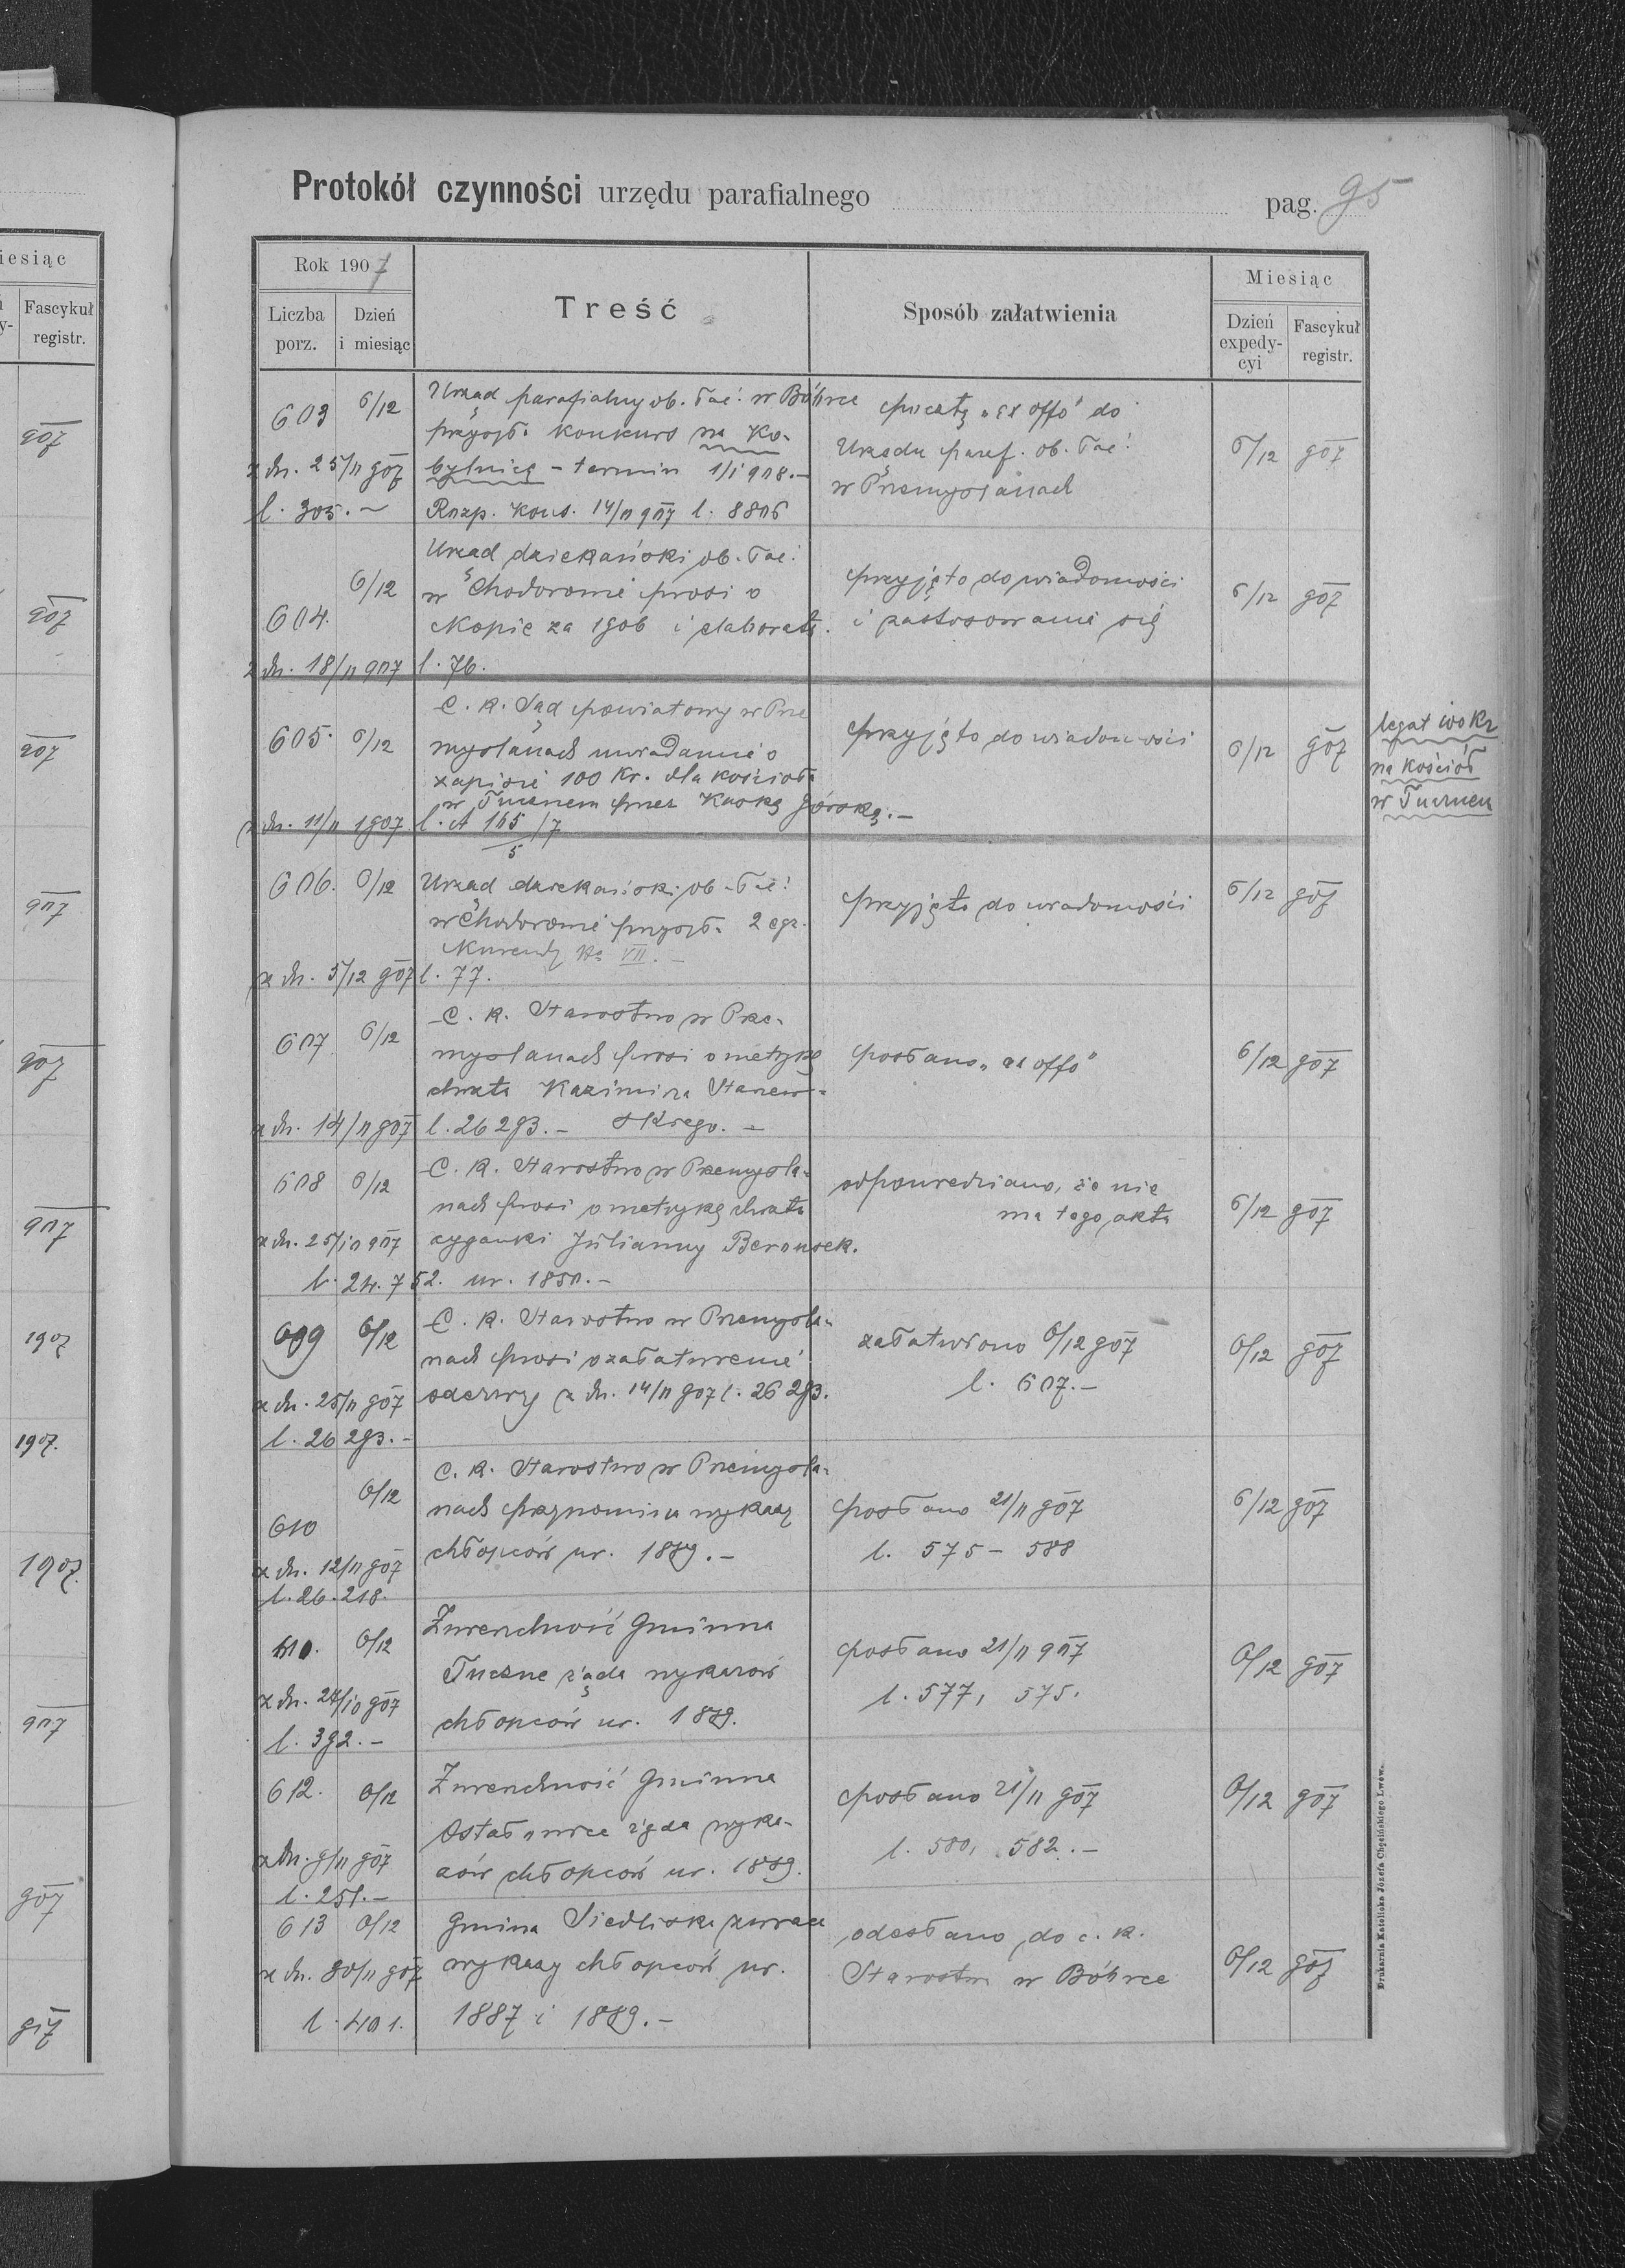 Protokół czynności urzędu parafialnego pag. 95
Rok 1907
Liczba porz.
Dzień i miesiąc
Treść
Sposób załatwienia
Miesiąc
Dzień expedycyi
Fascykuł registr.
603 6/12 Urząd parafialny ob. łać. w Bóbrce
przysyła konkurs na Ko-
z dn. 25/11 907 bylnicę - termin 1/1 908.-
l. 305.- Rozp. kons. 14/11 907 l. 8806
pocztą "ex offo" do
Urzędu paraf. ob. łać.
w Przemyślanach
6/12 907
Urząd dziekański ob. łać.
604. 6/12 w Chodorowie prosi o
kopie za 1906 i elaboraty.
z dn. 18/11 907 l. 76.
przyjęto do wiadomości
i zastosowania się
6/12 907
C. k. Sąd powiatowy w Prze
605. 6/12 myślanach uwiadamia o
zapisie 100 Kr. dla kościoła
w Tucznem przez Kaśkę Górską.-
z dn. 11/11 1907 l. A 165/5 /7
przyjęto do wiadomości
6/12 907
legat 100 Kr
na kościół
w Tucznem
606. 6/12 Urząd dziekański ob. łać.
w Chodorowie przysyła 2 egz.
Kurendy No VII.-
z dn. 5/12 907 l. 77.
przyjęto do wiadomości
6/12 907
C. k. Starostwo w Prze-
607. 6/12 myślanach prosi o metrykę
chrztu Kazimierza Staniew-
z dn. 14/11 907 l. 26293.- skiego.-
posłano "ex offo"
6/12 907
608 6/12 C. k. Starostwo w Przemyśla-
nach prosi o metrykę chrztu
z dn. 25/10 907 cyganki Julianny Berousek.
l. 24.752. ur. 1850.-
odpowiedziano, że nie
ma tego aktu
6/12 907
609 6/12 C. k. Starostwo w Przemyśla-
nach prosi o załatwienie
z dn. 25/11 907 odezwy z dn. 14/11 907 l. 26293.
l. 26293.-
załatwiono 6/12 907
l. 607.-
6/12 907
C. k. Starostwo w Przemyśla-
610 6/12 nach przypomina wykazy
z dn. 12/11 907 chłopców ur. 1889.-
l. 26.218.
posłano 21/11 907
l. 575 - 588
6/12 907
6/12 Zwierzchność Gminna
Tuczne żąda wykazów
z dn. 27/10 907 chłopców ur. 1889.
l. 392.-
posłano 21/11 907
l. 577, 575.
6/12 907
612. 6/12 Zwierzchność Gminna
Ostałowice żąda wyka-
z dn. 9/11 907 zów chłopców ur. 1889.
l. 251.-
posłano 21/11 907
l. 580, 582.-
6/12 907
613 6/12 Gmina Siedliska zwraca
z dn. 30/11 907 wykazy chłopców ur.
l. 401. 1887 i 1889.-
odesłano do c. k.
Starostwa w Bóbrce
6/12 907
Drukarnia Katolicka Józefa Chęcińskiego Lwów.
iesiąc
Fascykuł
registr.
907
907
907
907
907
907
1907
1907.
1907.
907
907